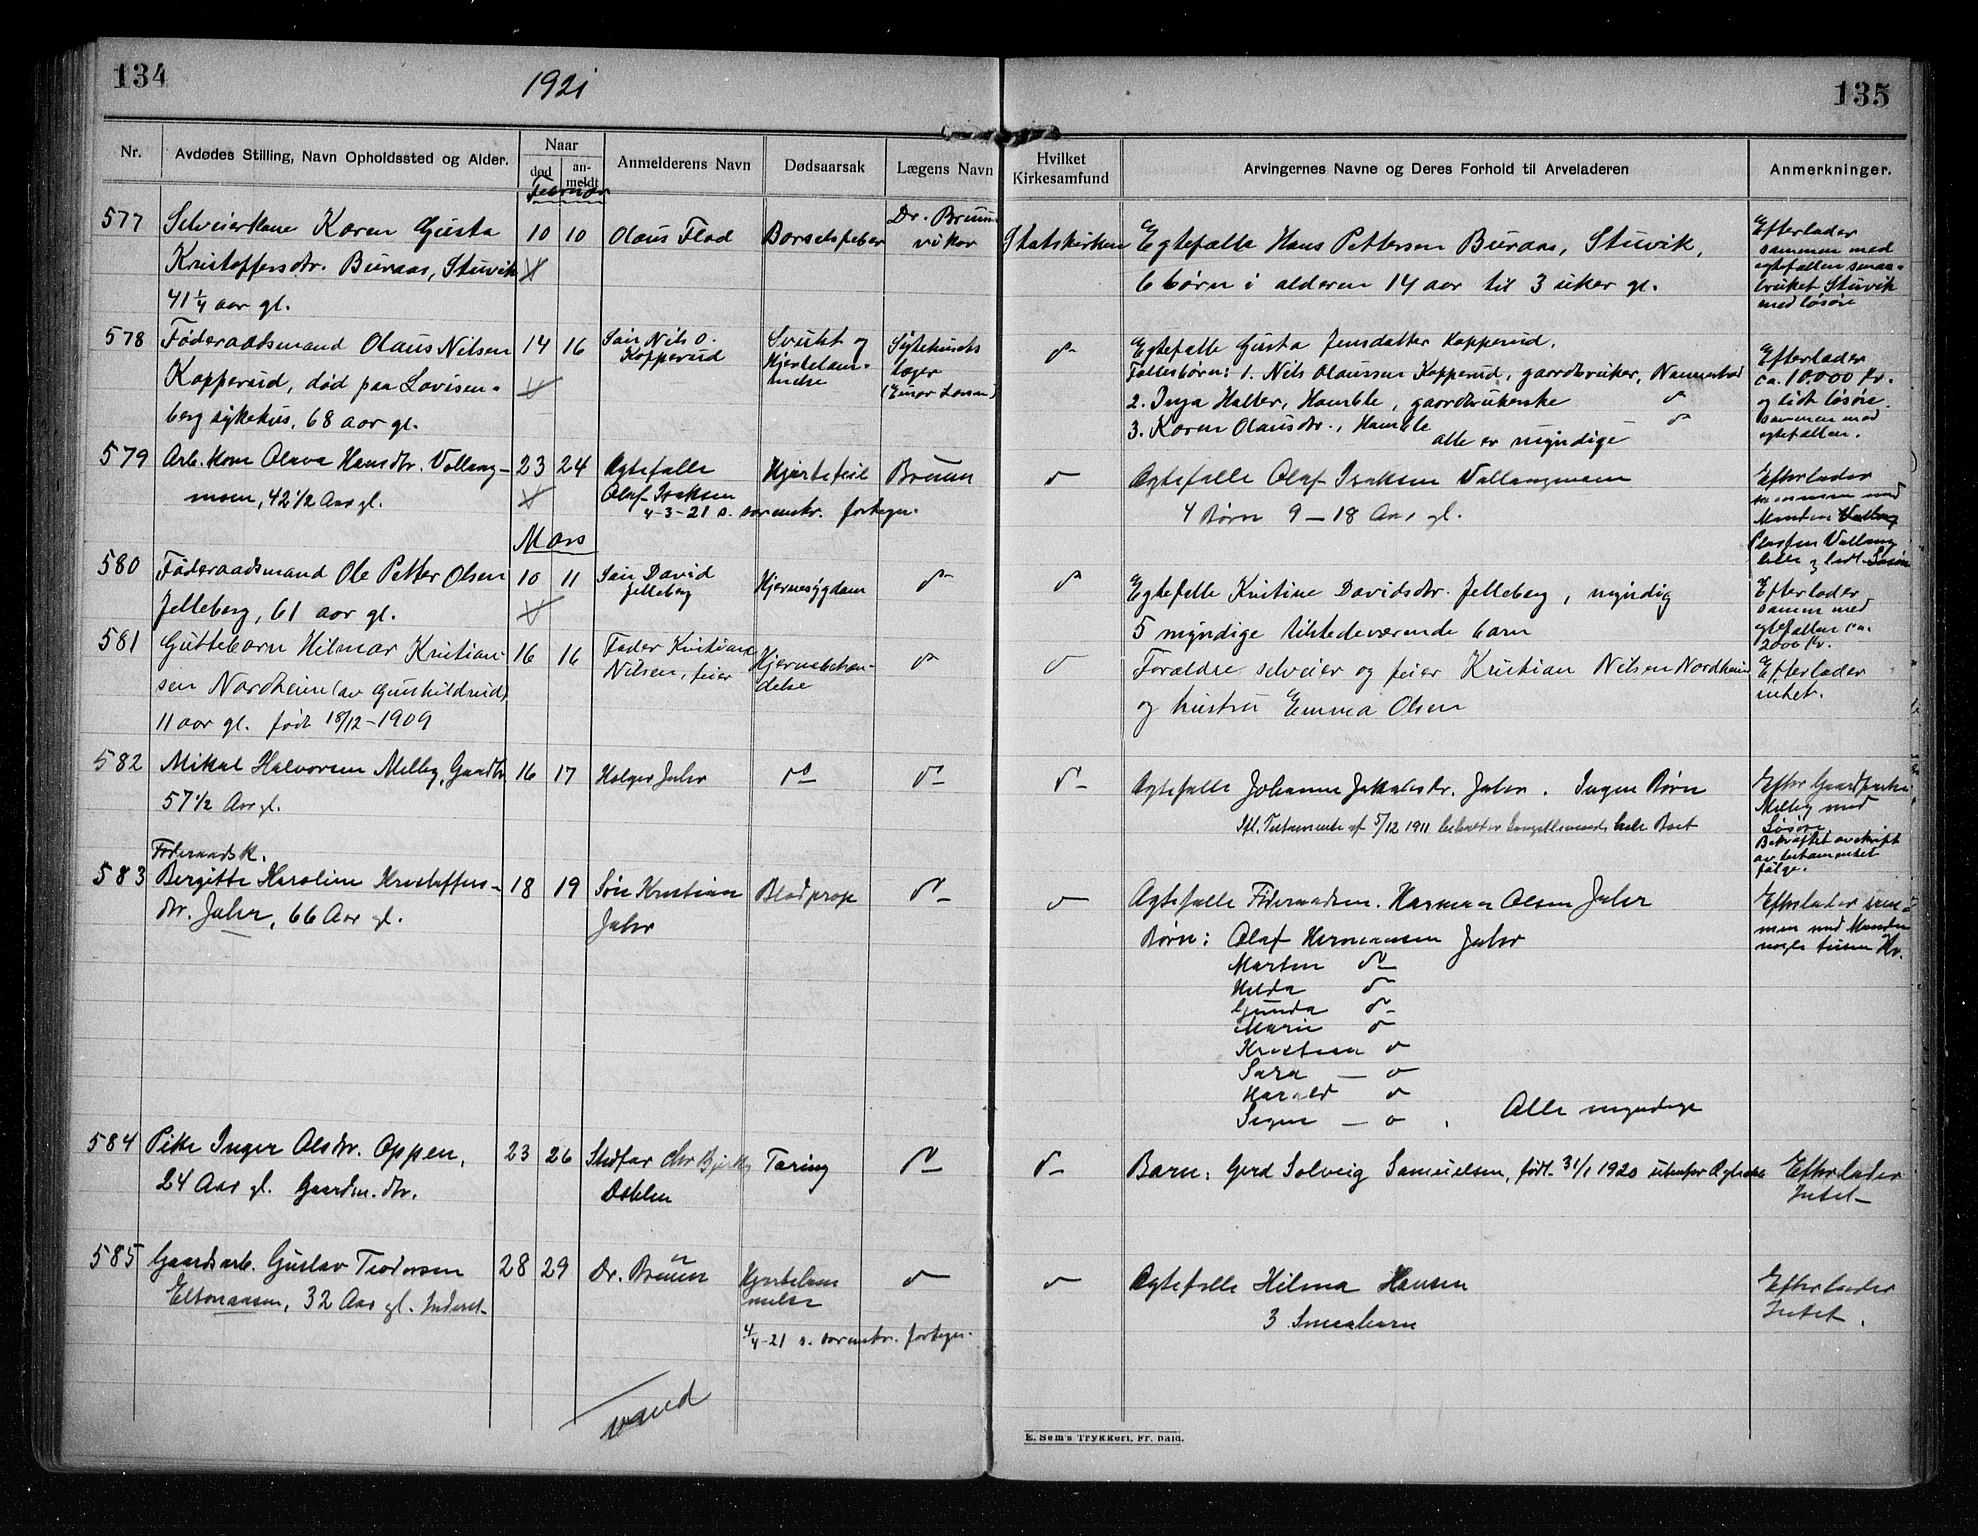 134
1921
135
Nr.
Avdødes Stilling, Navn Opholdssted og Alder.
Naar
død
an-
meldt
Anmelderens Navn
Dødsaarsak
Lægens Navn
Hvilket
Kirkesamfund
Arvingernes Navne og Deres Forhold til Arveladeren
Anmerkninger.
Februar
577
Selveierkone Karen Gusta
Kristoffersdtr. Buraas, Stuvik
41 1/4 aar gl.
10 10
Olaus Flod
Barselsfeber
Dr. Bruun
vikar
Statskirken
Egtefælle Hans Pettersen Buraas, Stuvik,
6 børn i alderen 14 aar til 3 uker gl.
Efterlader
sammen med
egtefællen smaa-
bruket Stuvik
med løsøre
578
Føderaadsmand Olaus Nilsen
Kopperud, død paa Lovisen-
berg sykehus, 68 aar gl.
14 16
Søn Nils O.
Kopperud
Svulst og
Hjertelam-
melse
Sykehusets
læger
Egtefælle Gusta Jensdatter Kopperud.
Fællesbørn: 1. Nils Olaussen Kopperud, gaardbruker, Nannestad
2. Inga Halter, Hamble, gaardbrukerske
3. Karen Olausdtr., Hamble
alle er myndige
Efterlader
ca. 10.000 kr.
og lidt løsøre
sammen med
egtefællen.
579
Arb. kone Olava Hansdtr. Vollaug-
moen, 42 1/2 Aar gl.
23 24
Ægtefælle
Olaf Isaksen
4-3-21 s. fortegn.
Hjertefeil
Bruun
Ægtefælle Olaf Isaksen Vollaugmoen
4 Børn 9 – 18 Aar gl.
Efterlader
sammen med
Manden
Pladsen Vollaug
Mars
580
Føderaadsmand Ole Petter Olsen
Jelleberg, 61 aar gl.
10 11
Søn David
Jelleberg
Hjernesygdom
Egtefelle Kristine Davidsdtr. Jelleberg, myndig
5 myndige tilstedeværende barn
Efterlader
samm med
egtefællen ca.
2000 kr.
581
Guttebarn Hilmar Kristian-
sen Nordheim (av Gunhildrud)
11 aar gl. født 18/12-1909
16 16
Fader Kristian
Nilsen, feier
Hjernebetæn-
delse
Forældre selveier og feier Kristian Nilsen Nordheim
og hustru Emma Olsen
Efterlader
intet.
582
Mikal Halvorsen Melby, Gaardbr.
57 1/2 Aar gl.
16 17
Holger Jahr
Ægtefælle Johanne Jahr. Ingen Børn
Ifl. Testamente af 5/12 1911 hele Boet
Efterl. Gaardparten
Melby med
Løsøre
Bekræftet avskrift
av testamentet
følge.
583
Føderaadsk.
Bergitte Karoline Kristoffers-
dtr. Jahr, 66 Aar gl.
18 19
Søn Kristian
Jahr
Blodprop
Ægtefælle Føderaadsm. Herman Olsen Jahr
Børn: Olaf Hermansen Jahr
Martin
Hilda
Gunda
Marie
Kristian
Sara
Harald
Signe
Alle myndige
Efterlader sam-
men med Manden
nogle tusen Kr.
584
Pike Inger Olsdtr. Oppen,
24 Aar gl. Gaardm. dtr.
23 26
Stedfar Chr
Dahlen
Tæring
Barn: Gerd Solveig Samuelsen, født 31/1 1920 utenfor Ægteskab
Efterlader
Intet
585
Gaardsarb. Gustav Teodorsen
32 Aar gl.
28 29
Dr. Bruun
Hjertelam
melse
4/4-21 s. fortegn.
Ægtefælle Hilma Hansen
3 Smaabarn
Efterlader
Intet.
vend
E. Sem's Trykkeri, Fr. hald.